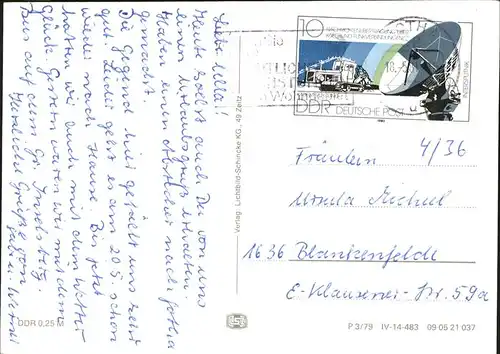 Liebe Ulla!
Heute sollst auch Du von uns
einen Urlaubsgruß erhalten.
Haben einen Abstecher nach Gotha
gemacht.
Die Gegend hier gefällt uns sehr
gut. Leider geht es am 20.5. schon
wieder nach Hause. Bis jetzt
hatten wir auch mit dem Wetter
Glück. Gestern waren wir mit dem
Bus auf dem Gr. Inselsberg.
Herzliche Grüße
DDR 0,25 M
Verlag: Lichtbild-Schincke KG., 49 Zeitz
10
DDR DEUTSCHE POST
INTERSPUTNIK
Fräulein 4/36
Ursula Michael
1636 Blankenfelde
E-Klausener-Str. 59a
P 3/79 IV-14-483 09 05 21 037